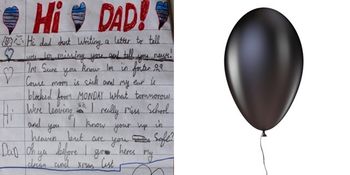 Hi DAD!
Hi dad Just Writing a letter to tell
you Im missing you and tell you news!
Im Sure you know Im in foster 22
Cause mom is sick and my ear is
blocked from MONDAY What tomorrow
Were leaving I really miss School
Hi
and you I know your up in
heaven but are you Safe?
Dad
Oh ya before I go heres my
dream and xmas list